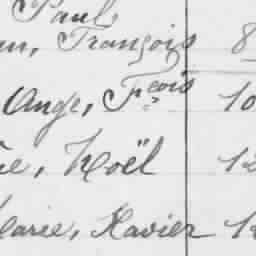 Paul
François 8
Ange, Fçois 10
Noël 12
Marie, Xavier 1